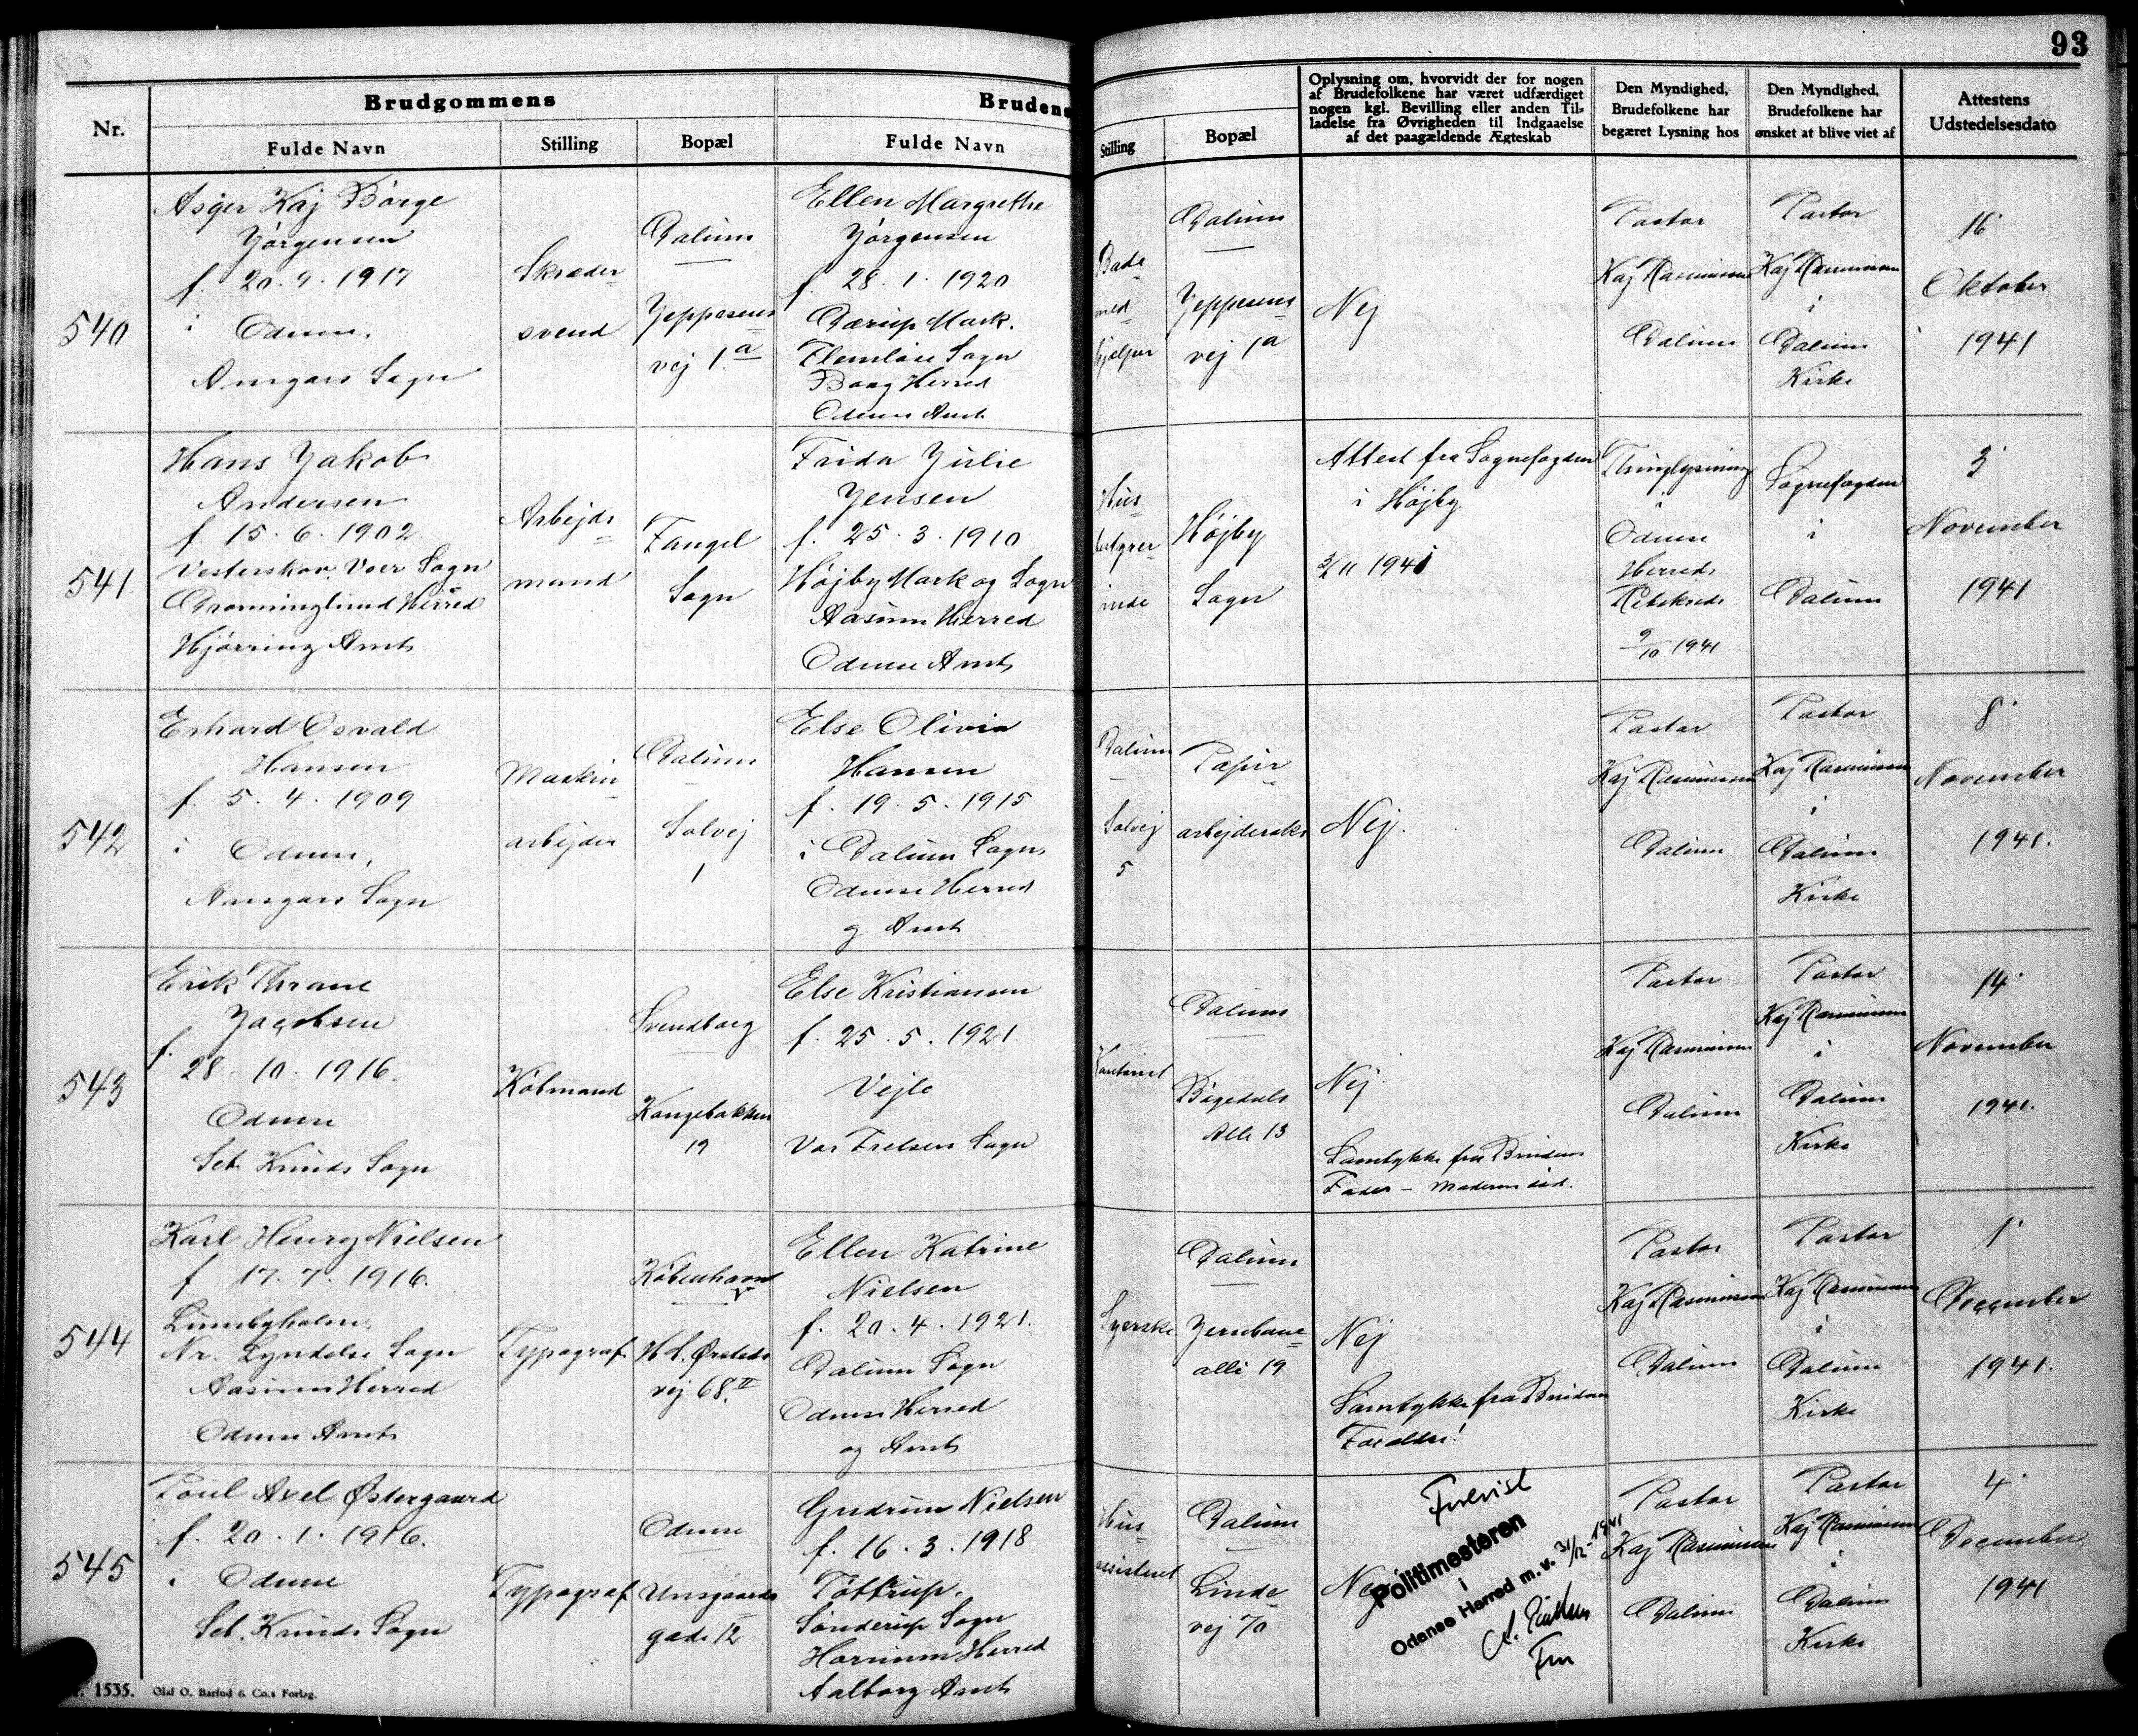 93
Brudgommens
Brudens
Nr.
Fulde Navn
Stilling
Bopæl
Fulde Navn
Stilling
Bopæl
Oplysning om, hvorvidt der for nogen
af Brudefolkene har været udfærdiget
nogen kgl. Bevilling eller anden Til-
ladelse fra Øvrigheden til Indgaaelse
af det paagældende Ægteskab
Den Myndighed,
Brudefolkene har
begæret Lysning hos
Den Myndighed,
Brudefolkene har
ønsket at blive viet af
Attestens
Udstedelsesdato
540
Asger Kaj Børge
Jørgensen
f. 20.9.1917
i Odense.
Ansgars Sogn
Skræder
svend
Dalum
Jeppesens
vej 1a
Ellen Margrethe
Jørgensen
f. 28.1.1920
Dærup Mark.
Flemløse Sogn
Baag Herred
Odense Amt
Bade
med
hjelper
Dalum
Jeppesens
vej 1a
Nej
Pastor
Kaj Rasmussen
Dalum
Pastor
Kaj Rasmussen
i
Dalum
Kirke
16'
Oktober
1941
541
Hans Jakob
Andersen
f. 15.6.1902
Vesterskov, Voer Sogn
Dronninglund Herred
Hjørring Amt
Arbejds
mand
Fangel
Sogn
Frida Julie
Jensen
f. 25.3.1910
Højby Mark og Sogn
Aasum Herred
Odense Amt
Hus
bestyrer
inde
Højby
Sogn
Attest fra Sognefogden
i Højby
3/11 1941
Thinglysning
i
Odense
Herreds
Retskreds
9/10 1941
Sognefogden
i
Dalum
3'
November
1941
542
Erhard Osvald
Hansen
f. 5.4.1909
i Odense,
Ansgars Sogn
Maskin
arbejder
Dalum
Solvej
1
Else Olivia
Hansen
f. 19.5.1915
i Dalum Sogn,
Odense Herred
og Amt
Dalum
Solvej
5
Papir
arbejderske
Nej.
Pastor
Kaj Rasmussen
Dalum
Pastor
Kaj Rasmussen
i
Dalum
Kirke
8'
November
1941.
543
Erik Thrane
Jacobsen
f.
28-10.1916.
Odense
Sct. Knuds Sogn
Købmand
Svendborg
Kongebakken
19
Else Kristiansen
f. 25.5.1921.
Vejle
Vor Frelsers Sogn
Kontorist
Dalum
Bøgedals
Alle 13
Nej.
Samtykke fra Brudens
Fader - Moderen død.
Pastor
Kaj Rasmussen
Dalum
Pastor
Kaj Rasmussen
i
Dalum
Kirke
14'
November
1941.
544
Karl Henry Nielsen
f 17.7.1916.
Lumbyholm,
Nr. Lyndelse Sogn
Aasum Herred
Odense Amt
Typograf
København
V
H.C. Ørsteds
vej 68 II
Ellen Katrine
Nielsen
f. 20.4.1921.
Dalum Sogn
Odense Herred
og Amt
Syerske
Dalum
Jernbane
alle 19
Nej
Samtykke fra Brudens
Forældre!
Pastor
Kaj Rasmussen
Dalum
Pastor
Kaj Rasmussen
i
Dalum
Kirke
1'
December
1941.
545
Poul Axel Østergaard
f. 20.1.1916.
i Odense
Sct. Knuds Sogn
Typograf
Odense
Unsgaards
gade 12
Gudrun Nielsen
f. 16.3.1918
Tøttrup.
Sønderup Sogn
Hornum Herred
Aalborg Amt
Hus
assistent
Dalum
Linde
vej 70
Nej
Forevist
Politimesteren
i
Odense Herred m. v. 31/12-1941
Fm
Pastor
Kaj Rasmussen
Dalum
Pastor
Kaj Rasmussen
i
Dalum
Kirke
4'
December
1941
1535. Olaf O. Barfod & Co.s Forlag.